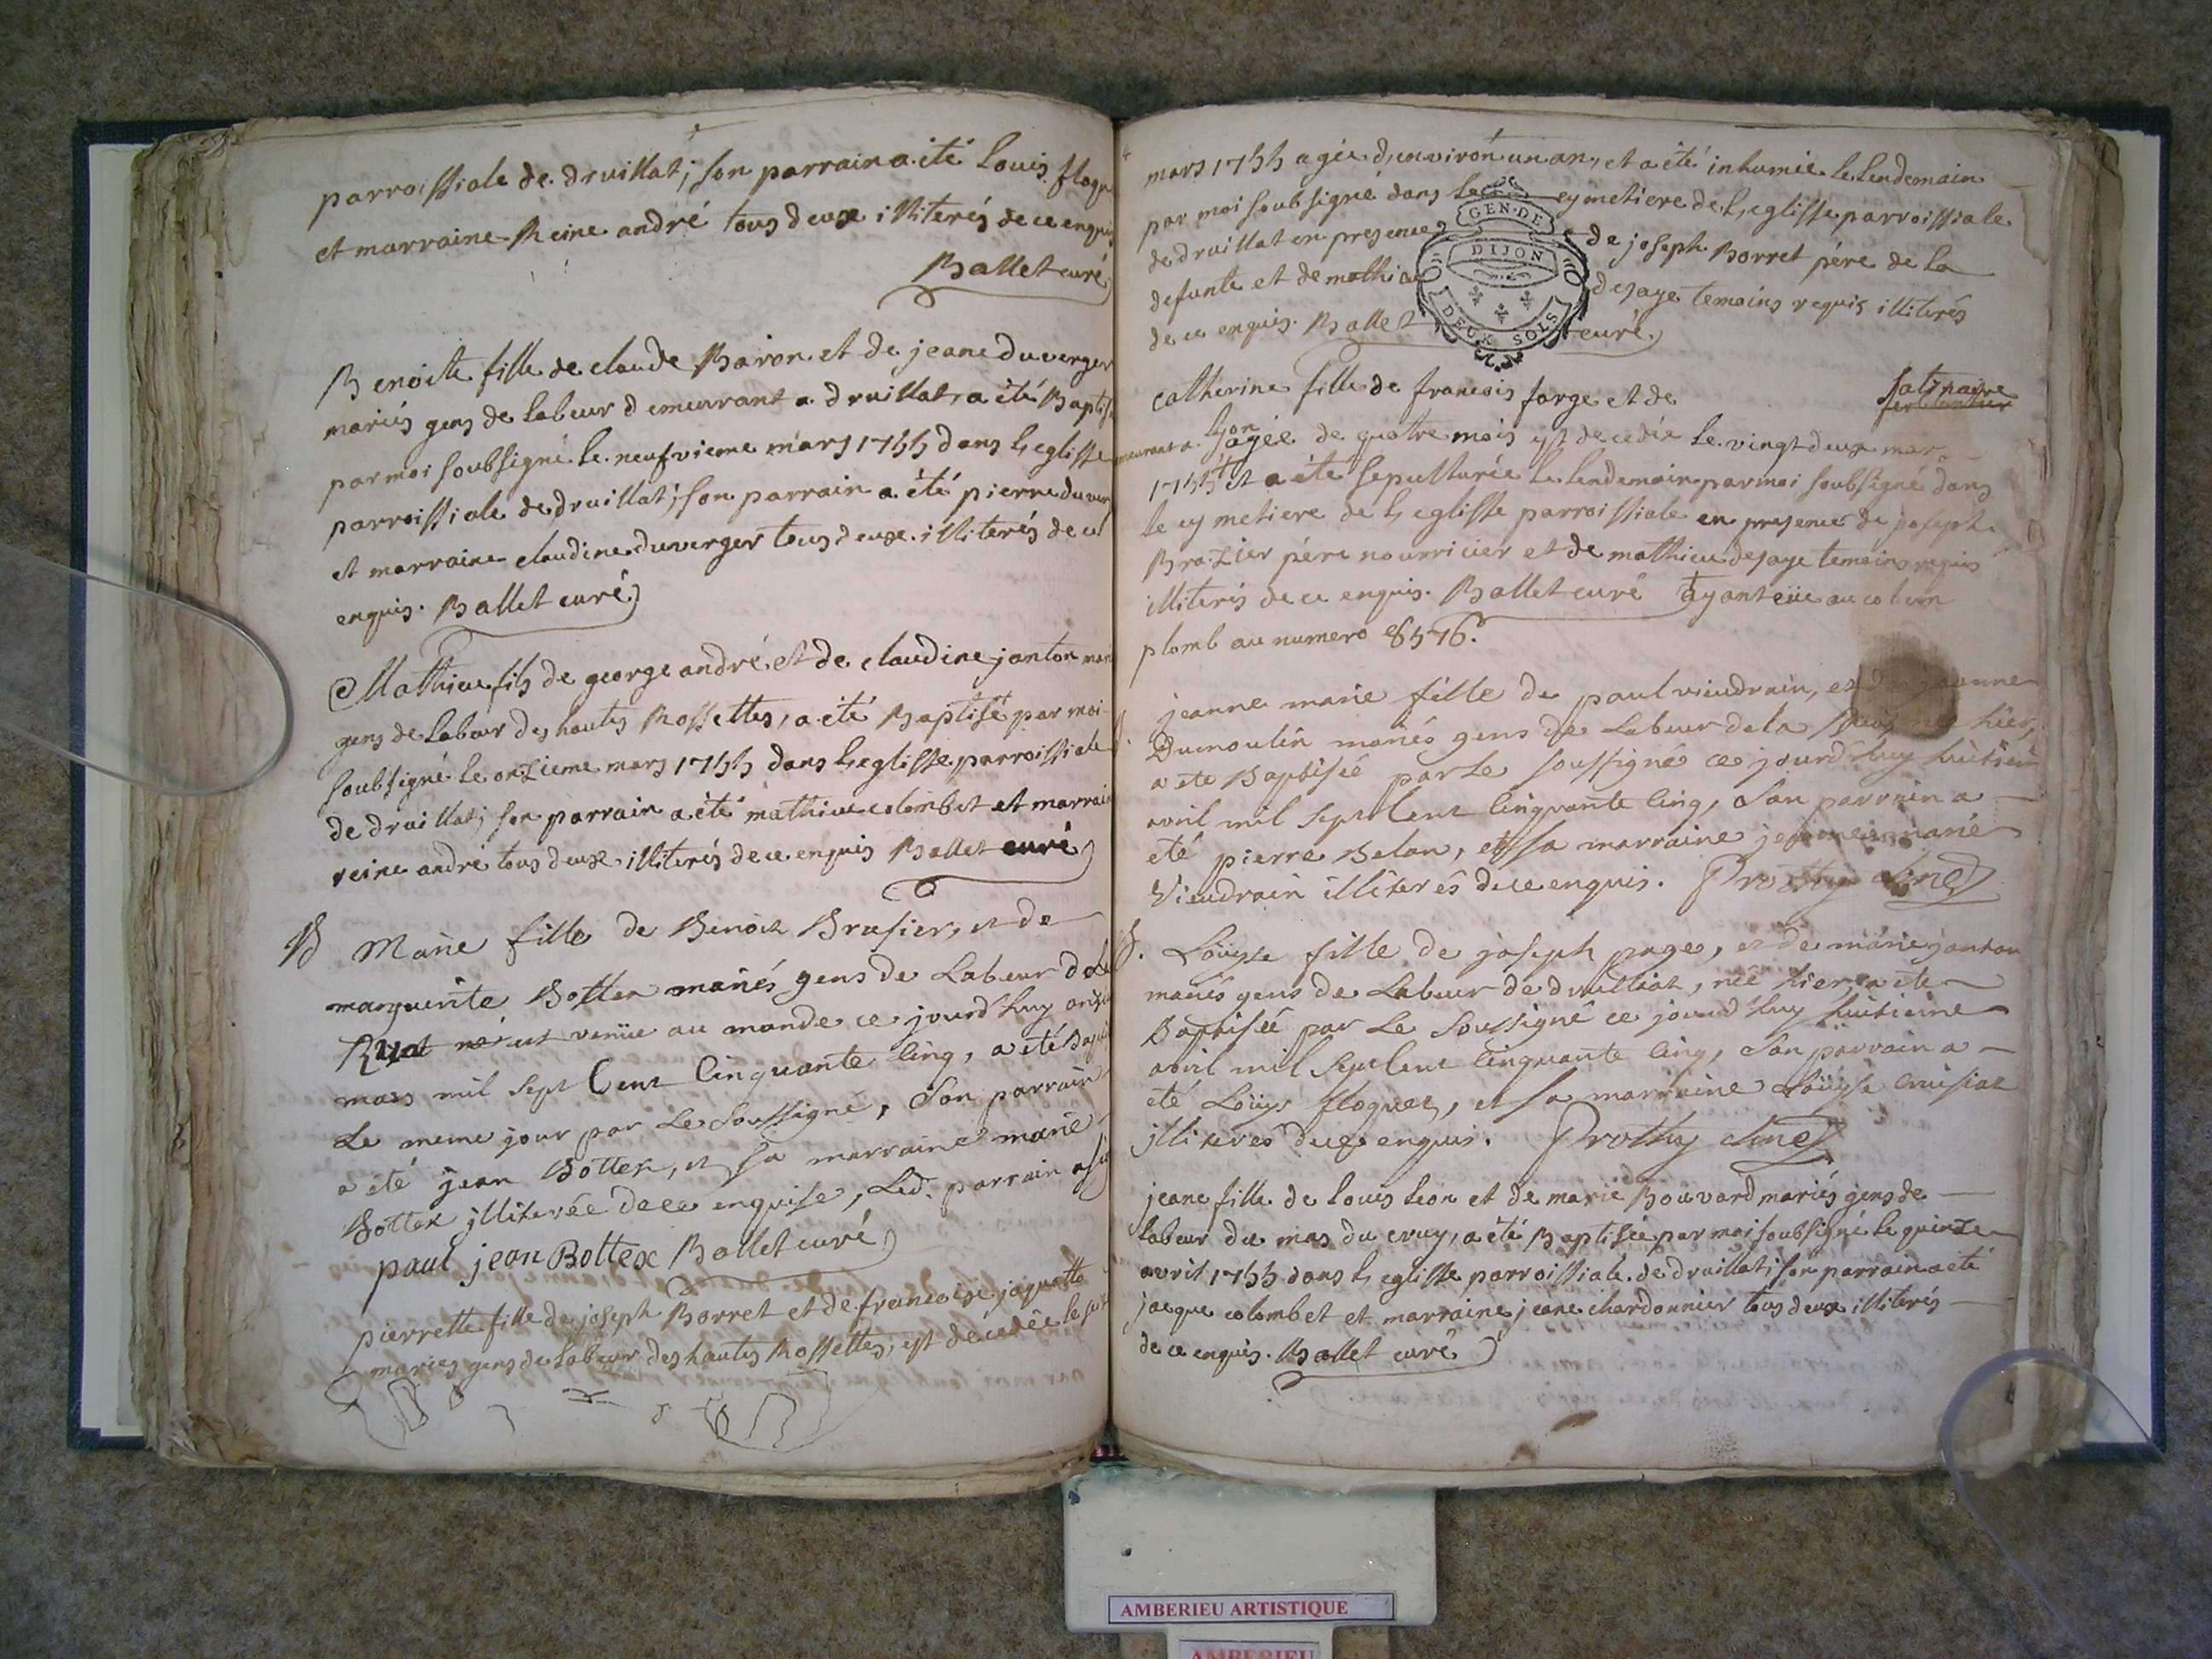 parroissiale de druillat; son parrain a été Louis floqu
et marraine Reine andré tous deux illiterés de ce enquis
Ballet curé
Benoite fille de claude Baron et de jeane duverger
mariés gens de labeur demeurant a druillat, a été Baptis
par moi soubsigné le neufvieme mars 1755 dans l'eglisse
parroissiale de druillat; son parrain a été pierre duver
et marraine claudine duverger tous deux illiterés de ce
enquis. Ballet curé
Mathieu fils de george andré et de claudine janton mari
gens de labeur des hautes Rossettes, a été Baptisé par moi
soubsigné le onzieme mars 1755 dans l'eglisse parroissiale
de druillat; son parrain a été mathieu colombet et marrain
reine andré tous deux illiterés de ce enquis Ballet curé
B Marie fille de Benoit Brasier, et de
marguerite Bottex mariés gens de Labeur de
venüe au monde ce jourd'huy onzie
mars mil sept Cent Cinquante Cinq, a été Bapti
Le meme jour par Le Soussigné, Son parrain
a été jean Bottex, et sa marraine marie
Bottex jlliterée de ce enquise, Led. parrain a si
paul jean Bottex Ballet curé
pierrette fille de joseph Borret et de francoise jaquette
maries gens de labeur des hautes Rossettes, est décedée le
mars 1755 agée d'environ un an, et a été inhumée le lendemain
par moi soubsigné dans le cymetiere de l'eglisse parroissiale
de druillat en presence de joseph Borret père de la
defunte et de mathieu desaye temoins requis illiterés
de ce enquis. Ballet curé
GEN. DE
DIJON
DEUX SOLS
catherine fille de francois farge et de
Lyon agée de quatre mois est decedée le vingt deux mars
1755 et a été sepulturée le lendemain par moi soubsigné dans
le cymetiere de l'eglisse parroissiale en presence de joseph
Brazier père nourricier et de mathieu desaye temoins requis
illiterés de ce enquis. Ballet curé ayant eüe au col un
plomb au numero 8576.
jeanne marie fille de paul vieudrain, et de jeanne
Dumoulin mariés gens de Labeur de la hier,
a été Baptisée par Le soussigné ce jourd'huy huitieme
avril mil sept Cent Cinquante Cinq, Son parrain a
eté pierre Belan, et sa marraine jeanne marie
Vieudrain illiterés de ce enquis. Prothy
B. Loüyse fille de joseph page, et de marie janton
mariés gens de Labeur de druillat, née hier, a ete
Baptisée par Le Soussigné ce jourd'huy huitieme
avril mil sept Cent Cinquante Cinq, Son parrain a
été Loüys floquet, et sa marraine Loüyse Cruisiat
jlliterés de ce enquis. Prothy
jeane fille de louis leon et de marie Bouvard mariés gens de
labeur du mas du cruy, a été Baptisée par moi soubsigné le quinze
avril 1755 dans l'eglisse parroissiale de druillat; son parrain a été
jacque colombet et marraine jeane chardonnier tous deux illiterés
de ce enquis. Ballet curé
AMBERIEU ARTISTIQUE
AMBERIEU